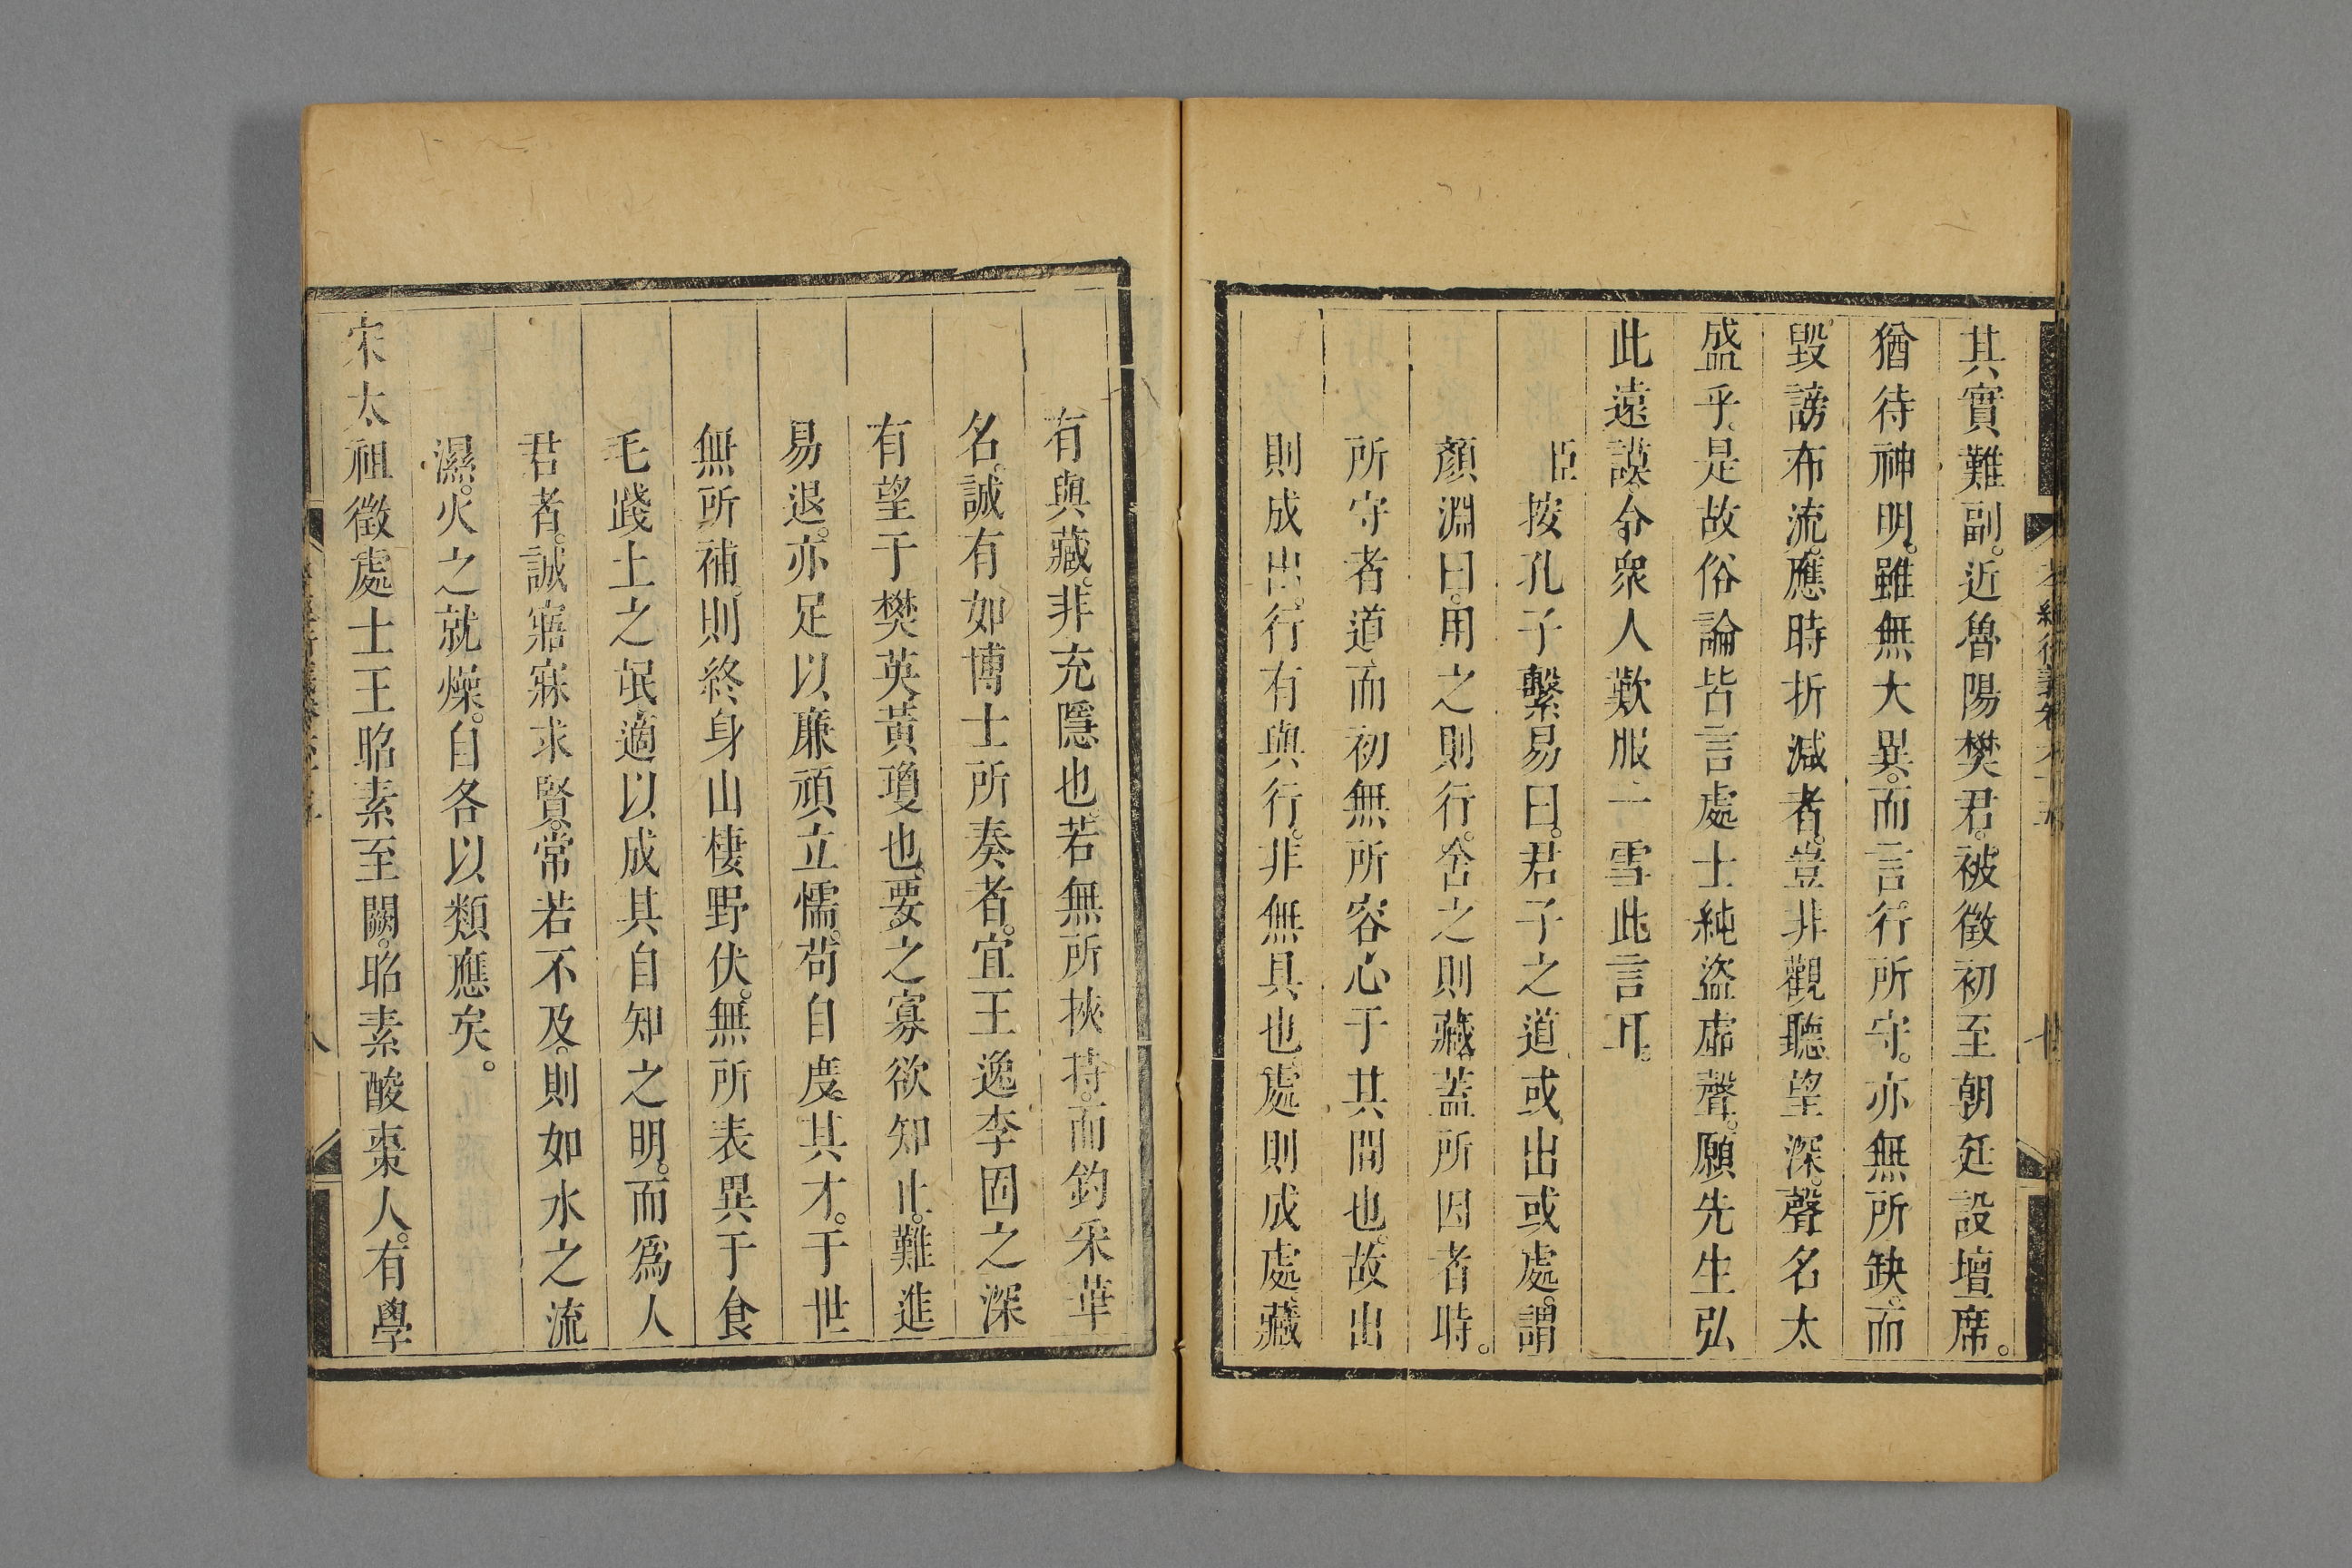 其實難副。近魯陽樊君。被徵初至朝廷設壇席。
猶待神明。雖無大異。而言行所守。亦無所缺。而
毀謗布流。應時折減者。豈非觀聽望深。聲名太
盛乎。是故俗論皆言處士純盜虛聲。願先生弘
此遠謨。令衆人歎服一雪此言耳。
臣按孔子繫易曰。君子之道或出或處。謂
顏淵曰。用之則行。舍之則藏。蓋所因者時。
所守者道而初無所容心于其間也。故出
則成出。行有與行。非無具也。處則成處。藏
有與藏。非充隱也。若無所挾持。而釣采華
名。誠有如博士所奏者。宜王逸李固之深
有望于樊英黃瓊也。要之寡欲知止。難進
易退。亦足以廉頑立懦。苟自度其才。于世
無所補。則終身山棲野伏。無所表異于食
毛踐土之氓。適以成其自知之明。而爲人
君者。誠寤寐求賢。常若不及。則如水之流
濕。火之就燥。自各以類應矣。
宋太祖徵處士王昭素至闕。昭素酸棗人。有學